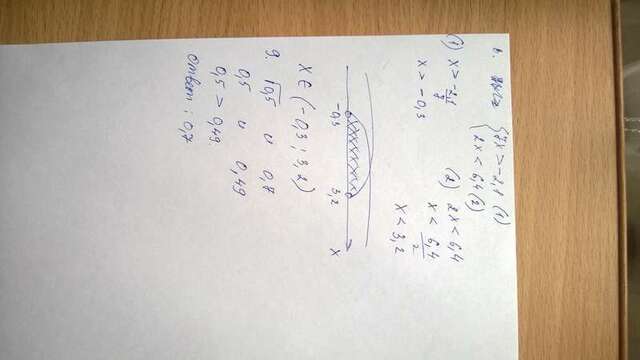 6.
{ 7x > -2,1 (1)
2x < 6,4 (2)
(1) x > -2,1/7
x > -0,3
(2) 2x < 6,4
x < 6,4/2
x < 3,2
-0,3 3,2 x
x ∈ (-0,3 ; 3,2)
9. √0,5 и 0,7
0,5 и 0,49
0,5 > 0,49.
Ответ: 0,7